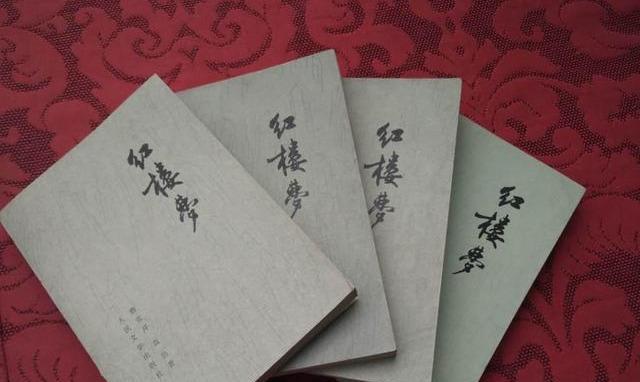 红楼梦
曹雪芹 高鹗 著
人民文学出版社
红楼梦
红楼梦
红楼梦